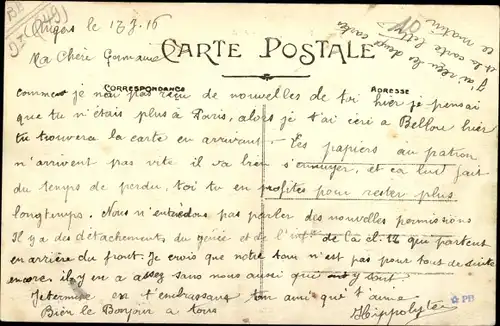 Angers le 17.3.16
J'ai reçu les deux cartes
et la carte lettre
ce matin
Ma Chère Germaine
CARTE POSTALE
CORRESPONDANCE
ADRESSE
comme je n'en pas reçu de nouvelles de toi hier je pensai
que tu n'étais plus à Paris, alors je t'ai écri a Bellou hier
tu trouvera la carte en arrivant. Tes papiers au patron
n'arrivent pas vite il va bien s'ennuyer, et ca lui fait
du temps de perdu, toi tu en profites pour rester plus
longtemps. Nous n'entendons pas parler des nouvelles permissions
Il y a des détachements du génie et de l' de la cl. 12 qui partent
en arrière du front. Je crois que notre tour n'est pas pour tous de suite
encore, il y en a assez sans nous aussi que y sont.
Je termine en t'embrassant ton ami qui t'aime
Bien le Bonjour a tous
Hippolyte
PH